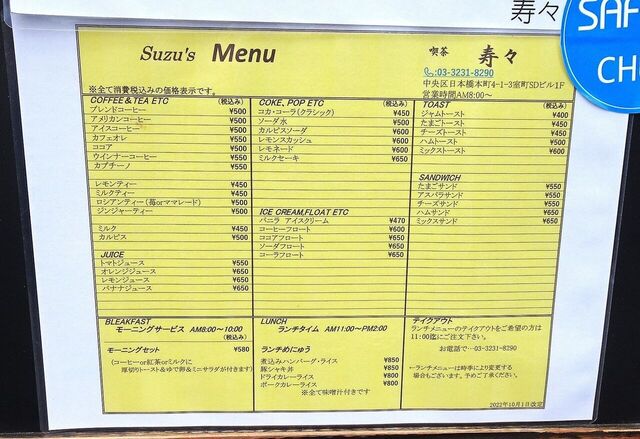 寿々
SAF
CH
Suzu's Menu
喫茶 寿々
℡:03-3231-8290
中央区日本橋本町4-1-3室町SDビル1F
営業時間AM8:00～
※全て消費税込みの価格表示です。
COFFEE&TEA ETC (税込み)
ブレンドコーヒー ¥500
アメリカンコーヒー ¥500
アイスコーヒー ¥500
カフェオレ ¥550
ココア ¥500
ウインナーコーヒー ¥550
カプチーノ ¥550
レモンティー ¥450
ミルクティー ¥450
ロシアンティー(苺orママレード) ¥500
ジンジャーティー ¥500
ミルク ¥450
カルピス ¥500
JUICE
トマトジュース ¥550
オレンジジュース ¥650
レモンジュース ¥650
バナナジュース ¥650
COKE, POP ETC (税込み)
コカ・コーラ(クラシック) ¥450
ソーダ水 ¥500
カルピスソーダ ¥600
レモンスカッシュ ¥600
レモネード ¥600
ミルクセーキ ¥650
ICE CREAM,FLOAT ETC
バニラ アイスクリーム ¥470
コーヒーフロート ¥600
ココアフロート ¥650
ソーダフロート ¥650
コーラフロート ¥650
TOAST (税込み)
ジャムトースト ¥400
たまごトースト ¥450
チーズトースト ¥450
ハムトースト ¥500
ミックストースト ¥600
SANDWICH
たまごサンド ¥550
アスパラサンド ¥550
チーズサンド ¥550
ハムサンド ¥650
ミックスサンド ¥650
BLEAKFAST
モーニングサービス AM8:00～10:00
(税込み)
モーニングセット ¥580
(コーヒーor紅茶orミルクに
厚切りトースト&ゆで卵&ミニサラダが付きます)
LUNCH
ランチタイム AM11:00～PM2:00
ランチめにゅう (税込み)
煮込みハンバーグ・ライス ¥850
豚シャキ丼 ¥850
ドライカレーライス ¥800
ポークカレーライス ¥800
※全て味噌汁付きです
テイクアウト
ランチメニューのテイクアウトをご希望の方は
11:00迄にご注文下さい。
お電話で…03-3231-8290
←ランチメニューは時季により変更する
場合もございます。予めご了承ください。
2022年10月1日改定